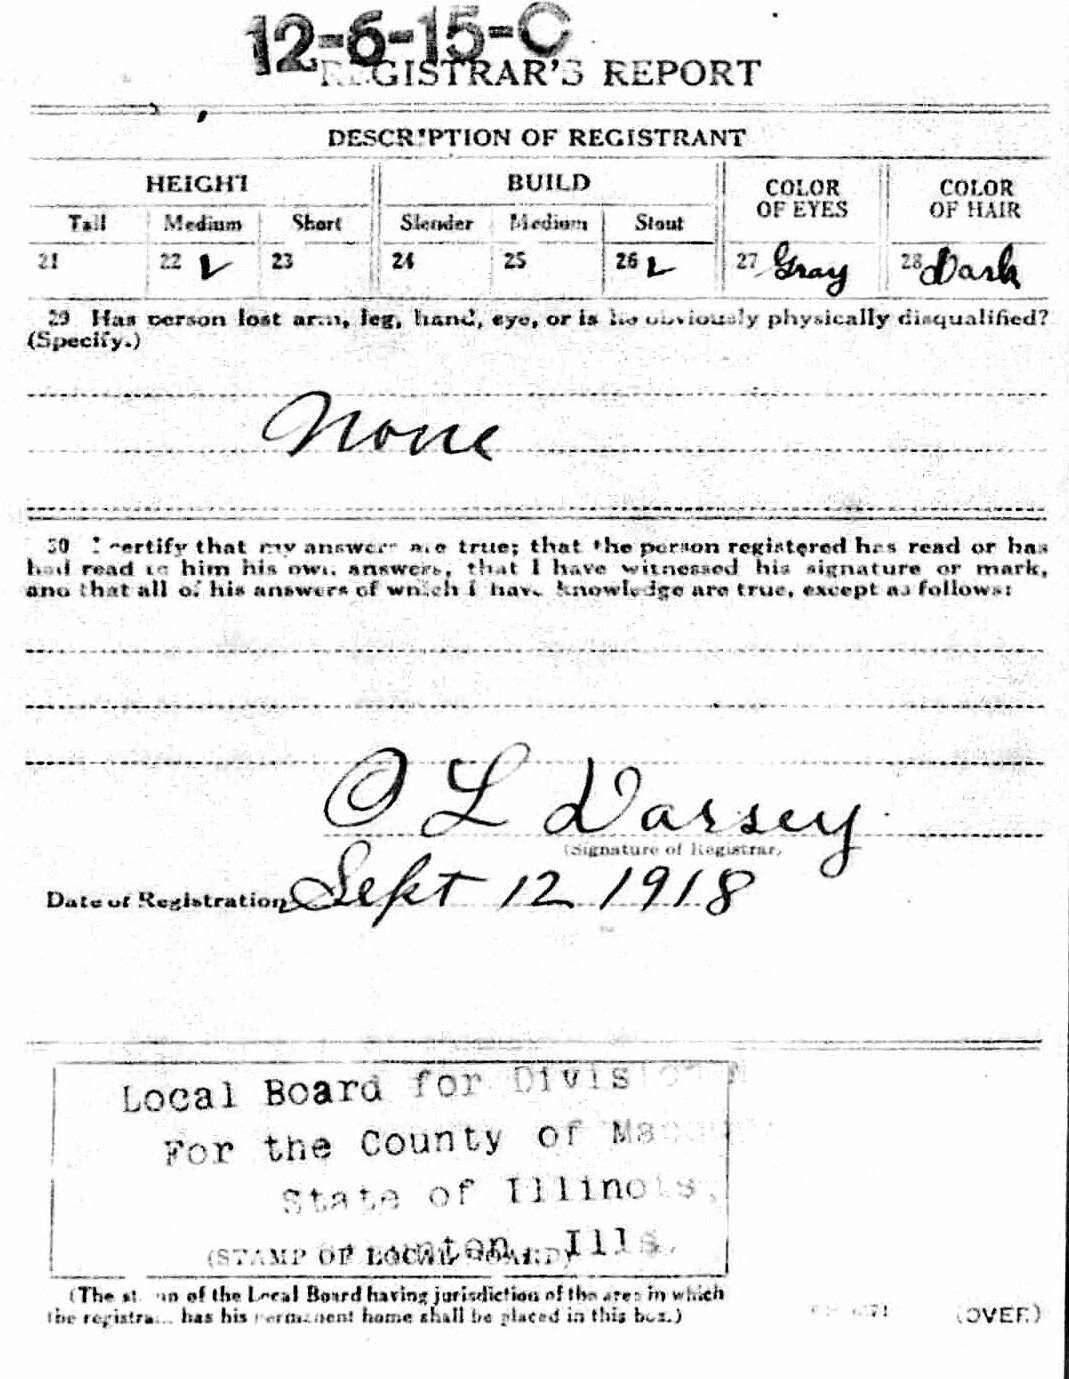 12-6-15-C
REGISTRAR'S REPORT
DESCRIPTION OF REGISTRANT
HEIGHT BUILD COLOR OF EYES COLOR OF HAIR
Tall Medium Short Slender Medium Stout
21 22 ✓ 23 24 25 26 ✓ 27 Gray 28 Dark
29 Has person lost arm, leg, hand, eye, or is he obviously physically disqualified?
(Specify.)
None
30 I certify that my answers are true; that the person registered has read or has
had read to him his own answers, that I have witnessed his signature or mark,
and that all of his answers of which I have knowledge are true, except as follows:
O L Darsey
(Signature of Registrar)
Date of Registration Sept 12 1918
Local Board for Divis
For the County of Ma
State of Illinois,
Ills.
(STAMP OF LOCAL BOARD)
(The stamp of the Local Board having jurisdiction of the area in which
the registrant has his permanent home shall be placed in this box.)
(OVER)